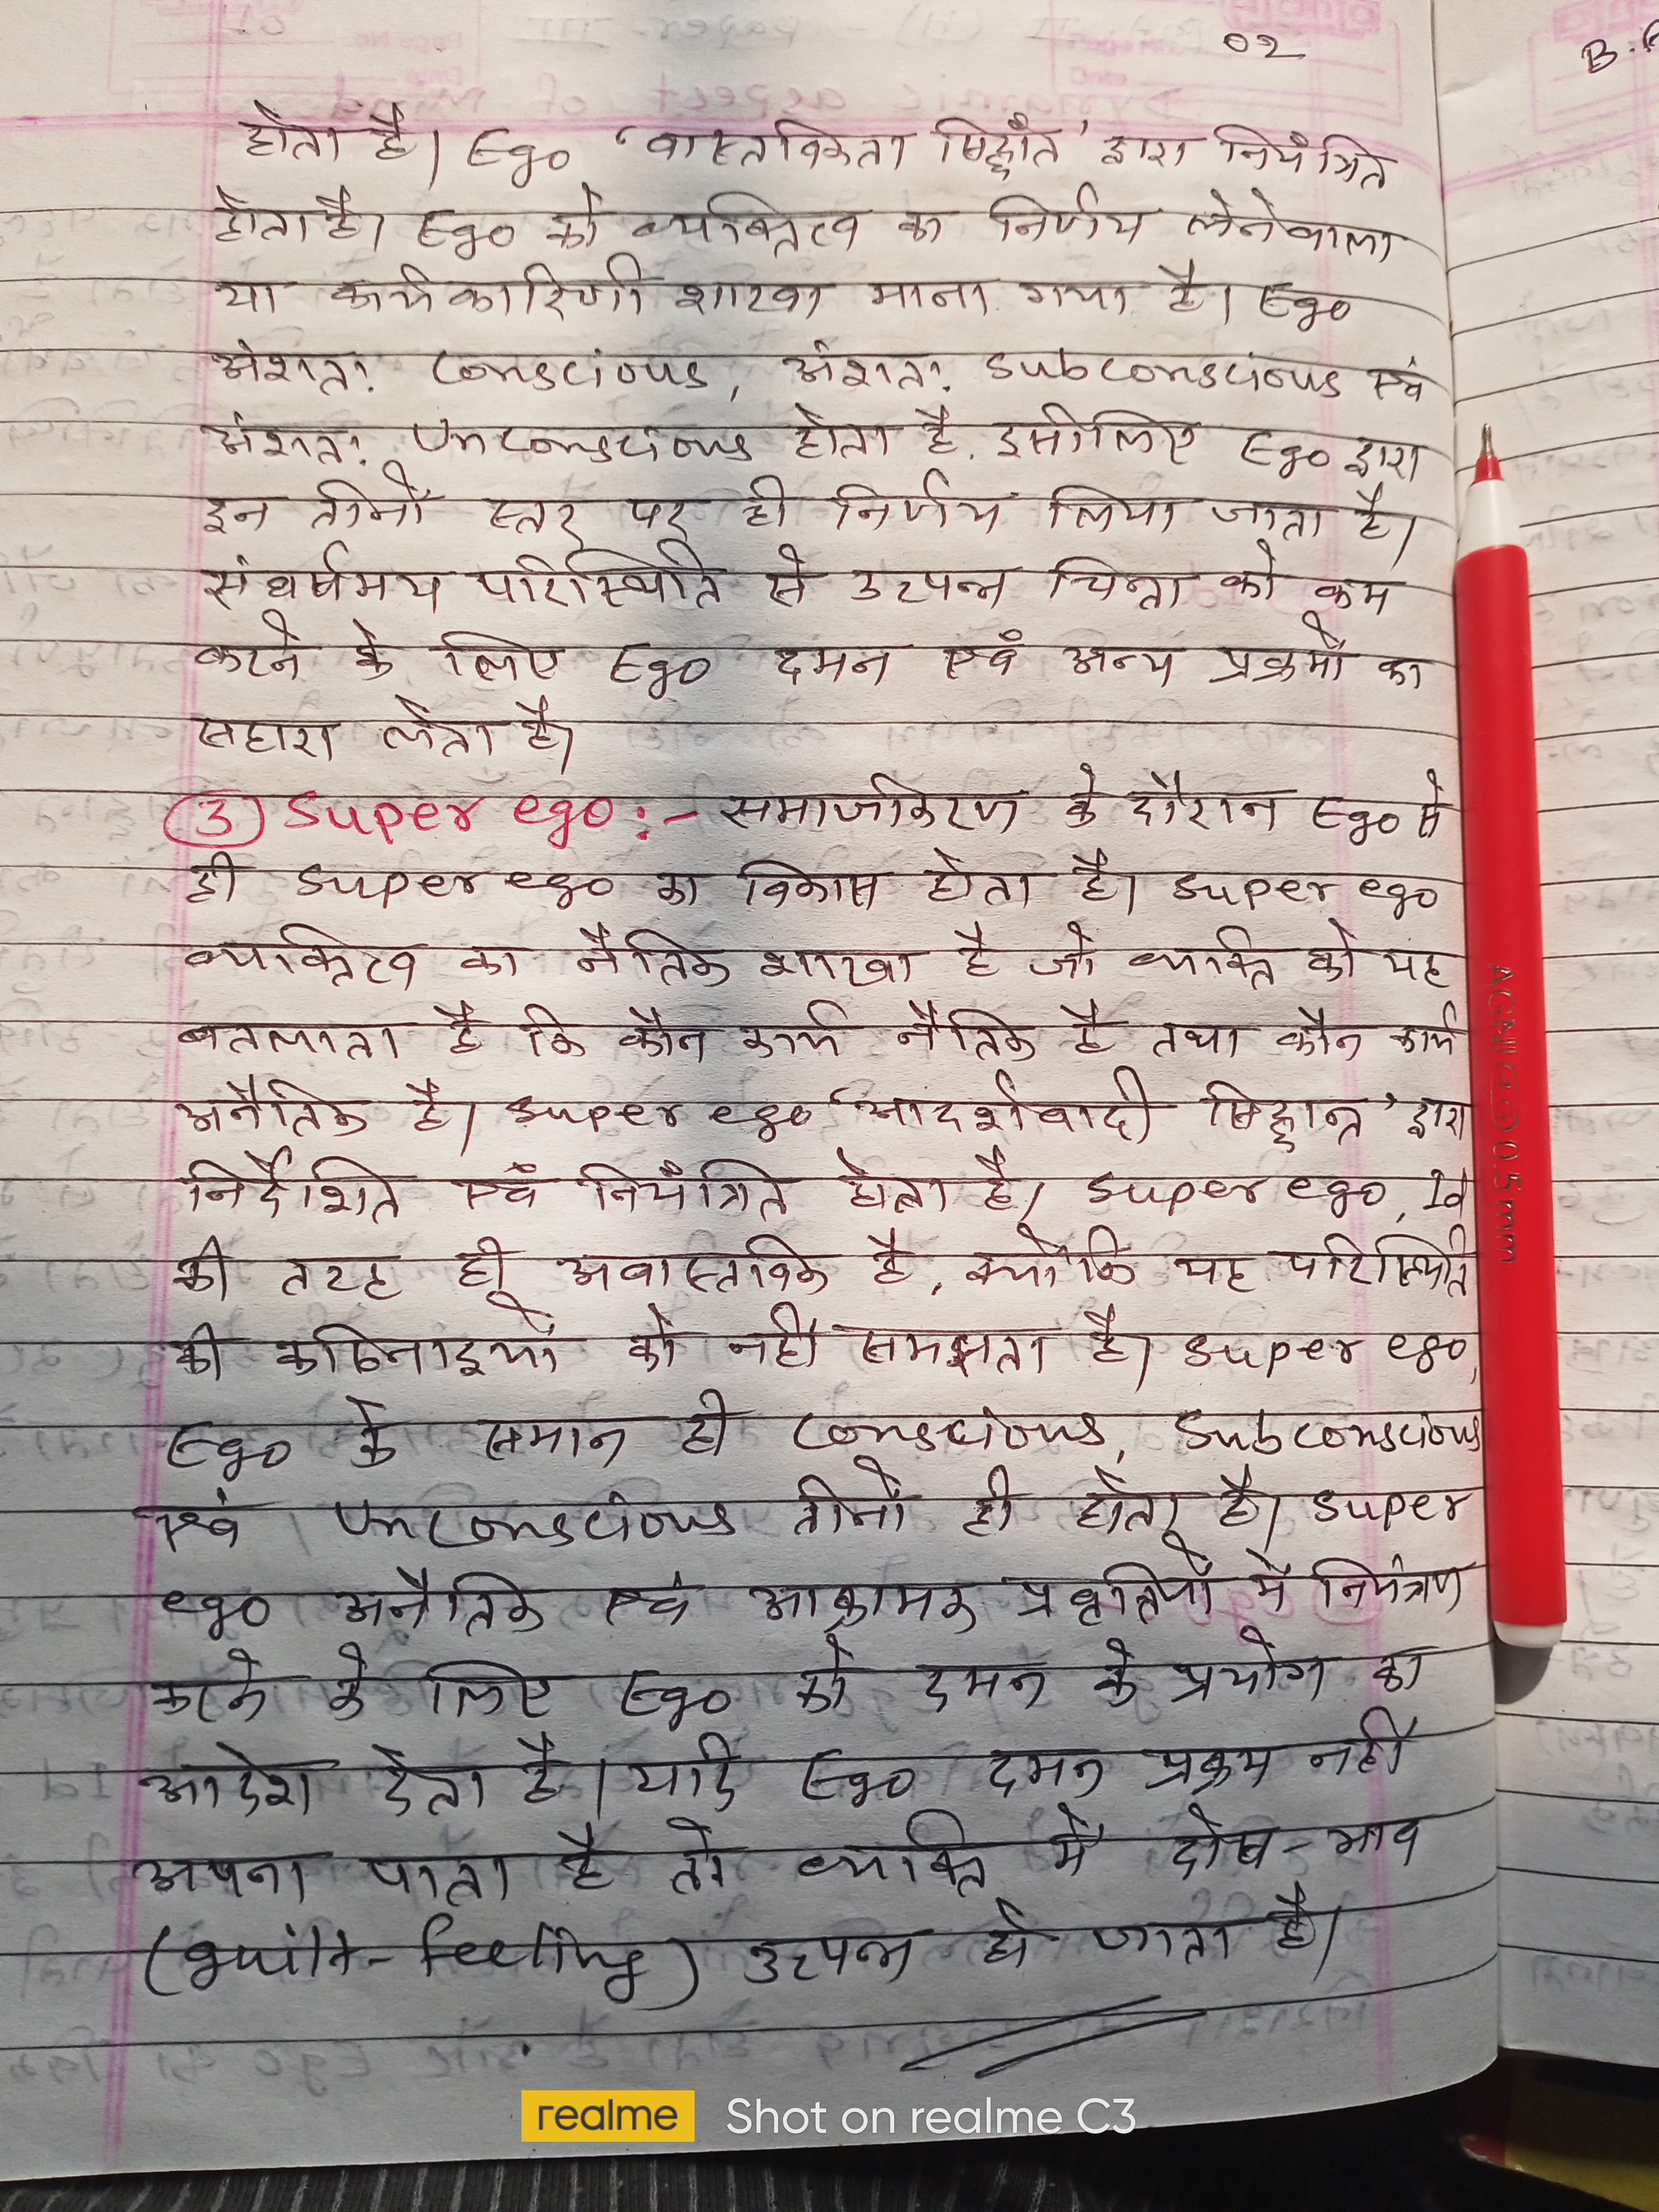 02
B.
होता है। Ego 'वास्तविकता सिद्धांत' द्वारा नियंत्रित
होता है। Ego को व्यक्तित्व का निर्णय लेनेवाला
या कार्यकारिणी शाखा माना गया है। Ego
अंशतः conscious, अंशतः subconscious एवं
अंशतः Unconscious होता है, इसीलिए Ego द्वारा
इन तीनों स्तर पर ही निर्णय लिया जाता है।
संघर्षमय परिस्थिति से उत्पन्न चिन्ता को कम
करने के लिए Ego दमन एवं अन्य प्रक्रमों का
सहारा लेता है।
(3) Super ego :- समाजीकरण के दौरान Ego से
ही super ego का विकास होता है। super ego
व्यक्तित्व का नैतिक शाखा है जो व्यक्ति को यह
बतलाता है कि कौन कार्य नैतिक है तथा कौन कार्य
अनैतिक है। super ego 'आदर्शवादी सिद्धान्त' द्वारा
निर्देशित एवं नियंत्रित होता है। super ego, Id
की तरह ही अवास्तविक है, क्योंकि यह परिस्थिति
की कठिनाइयों को नहीं समझता है। super ego,
Ego के समान ही conscious, Subconscious
एवं Unconscious तीनों ही होता है। super
ego अनैतिक एवं आक्रामक प्रवृतियों में नियंत्रण
करने के लिए Ego को दमन के प्रयोग का
आदेश देता है। यदि Ego दमन प्रक्रम नहीं
अपना पाता है तो व्यक्ति में दोष-भाव
(guilt-feeling) उत्पन्न हो जाता है।
AGNI 0.5mm
realme Shot on realme C3